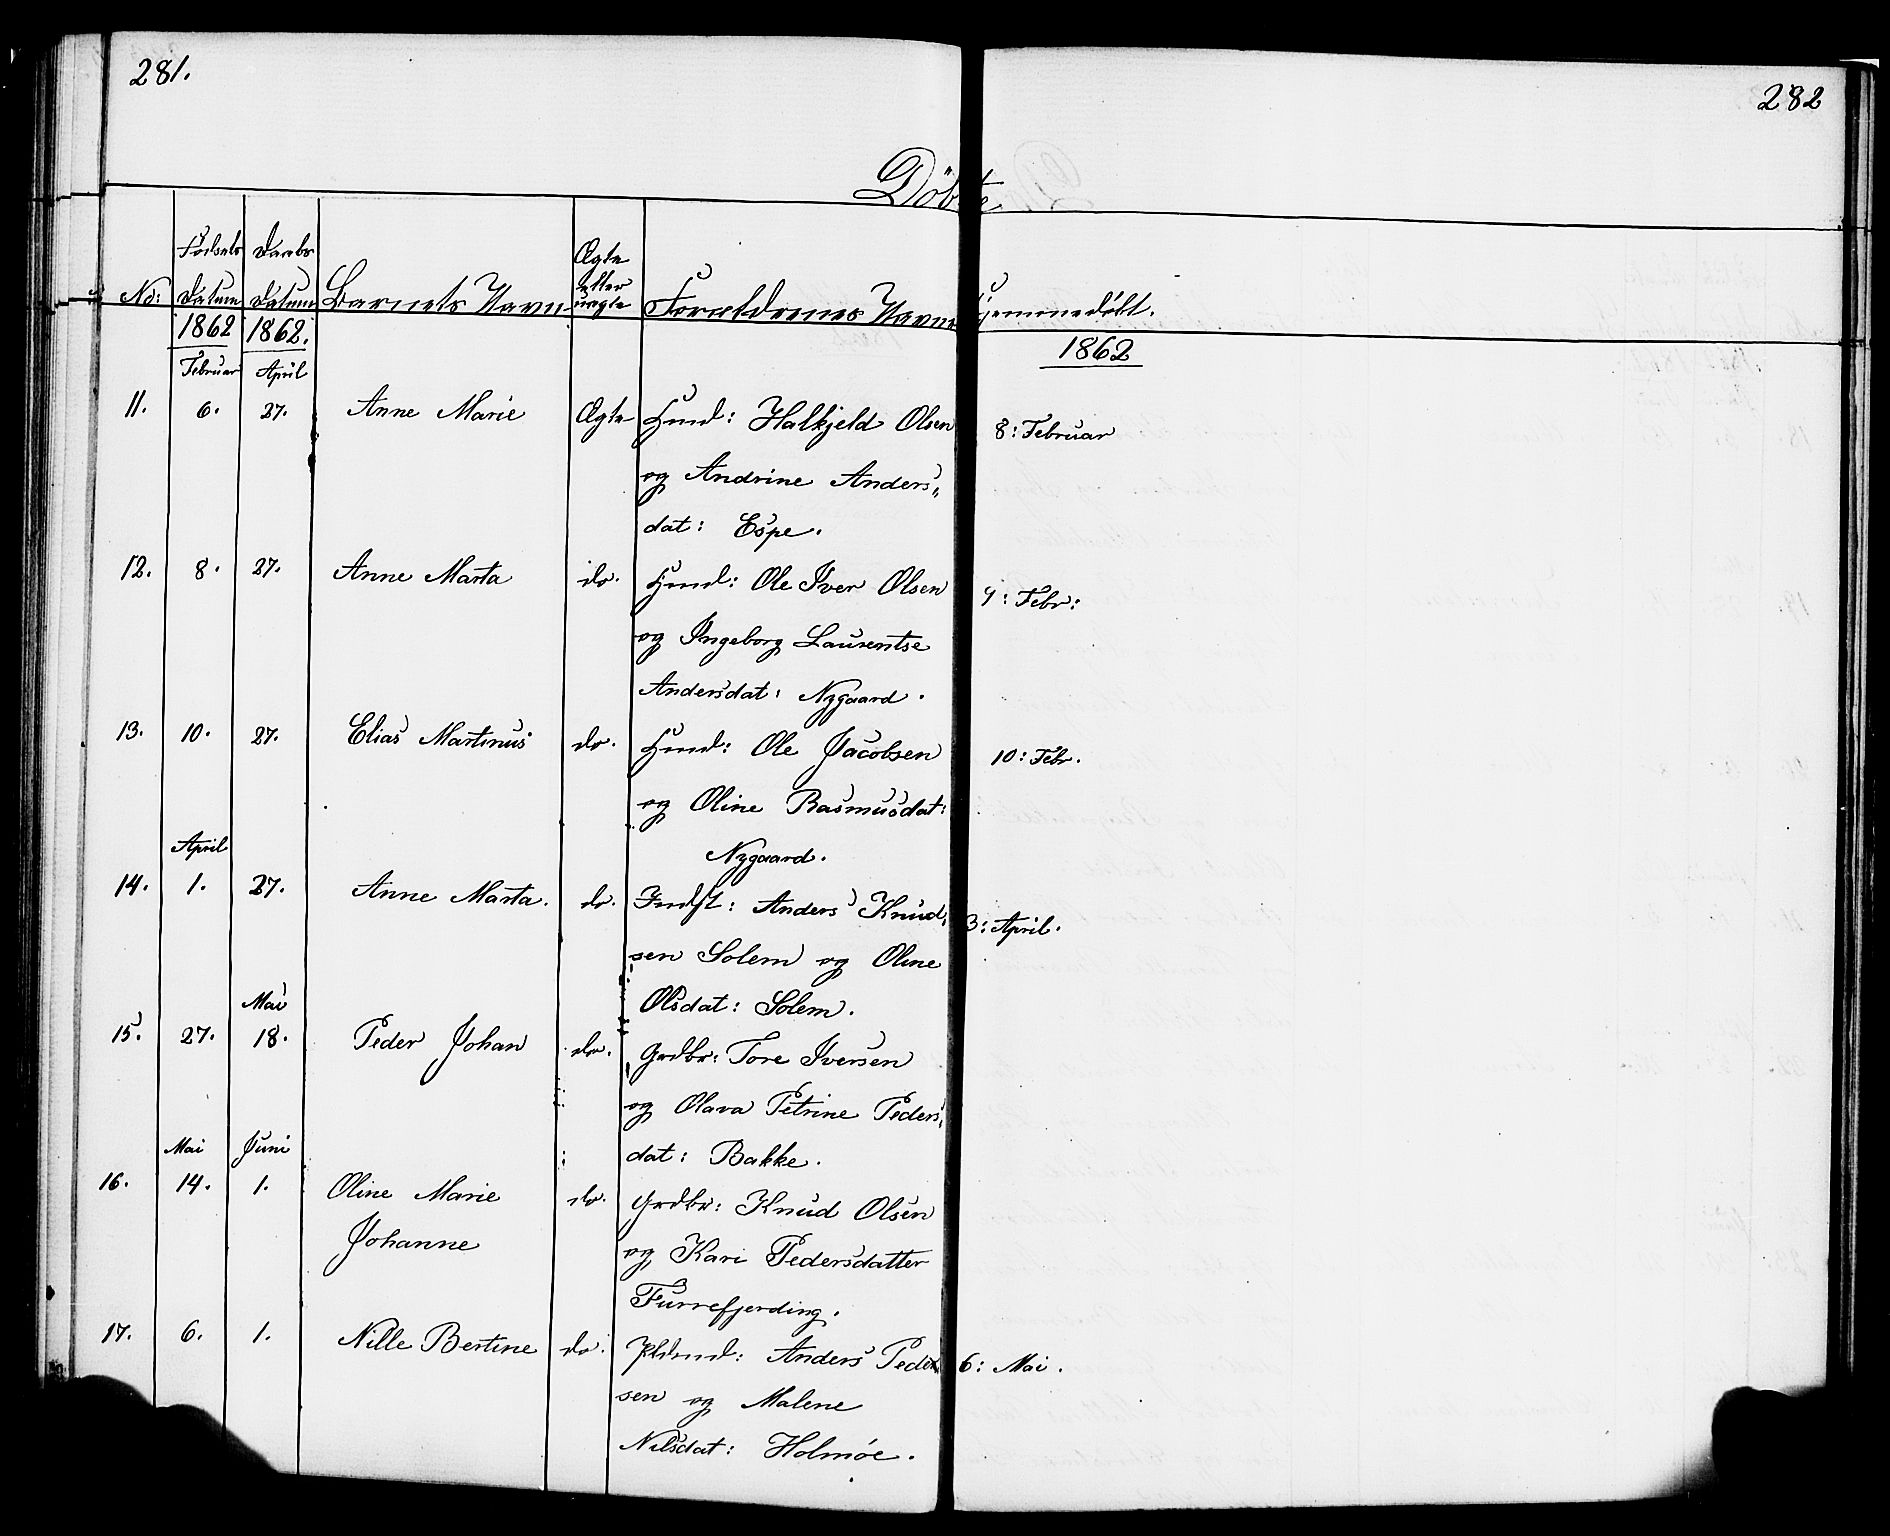 281.
282
Döbte
No: Födsels Datum Daabs Datum Barnets Navn Ægte eller uægte Forældrenes Navne Hjemmedöbt.
1862 1862. 1862
Februar April
11. 6. 27. Anne Marie Ægte Hmd: Halkjeld Olsen 8: Februar
og Andrine Anders„
dat: Espe.
12. 8. 27. Anne Marta do. Hmd: Ole Iver Olsen 9: Febr:
og Ingeborg Laurentse
Andersdat: Nygaard.
13. 10. 27. Elias Martinus do. Hmd: Ole Jacobsen 10: Febr.
og Oline Rasmusdat:
April Nygaard.
14. 1. 27. Anne Marta. do. Indst: Anders Knud„ 3: April.
sen Solem og Oline
Mai Olsdat: Solem.
15. 27. 18. Peder Johan do. Grdbr: Tore Iversen
og Olava Petrine Peders„
Mai Juni dat: Bakke.
16. 14. 1. Oline Marie do. Grdbr: Knud Olsen
Johanne og Kari Pedersdatter
Furrefjerding.
17. 6. 1. Nille Bertine do. Pldsmd: Anders Peder„ 6: Mai.
sen og Malene
Nilsdat: Holmöe.